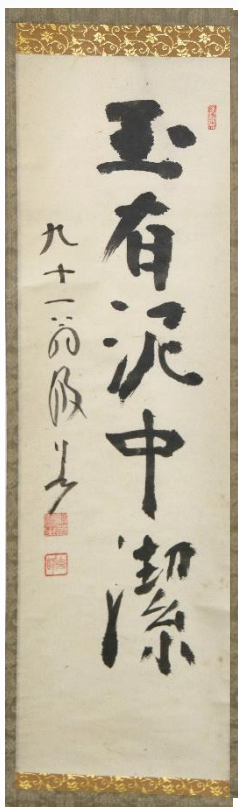 玉有泥中潔
九十一翁